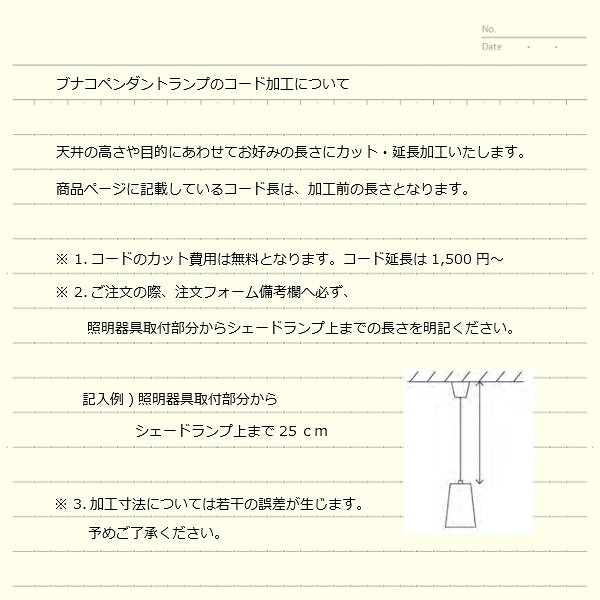 No.
Date ・ ・
ブナコペンダントランプのコード加工について
天井の高さや目的にあわせてお好みの長さにカット・延長加工いたします。
商品ページに記載しているコード長は、加工前の長さとなります。
※ 1. コードのカット費用は無料となります。コード延長は 1,500 円～
※ 2. ご注文の際、注文フォーム備考欄へ必ず、
照明器具取付部分からシェードランプ上までの長さを明記ください。
記入例 ) 照明器具取付部分から
シェードランプ上まで 25 ｃｍ
※ 3. 加工寸法については若干の誤差が生じます。
予めご了承ください。